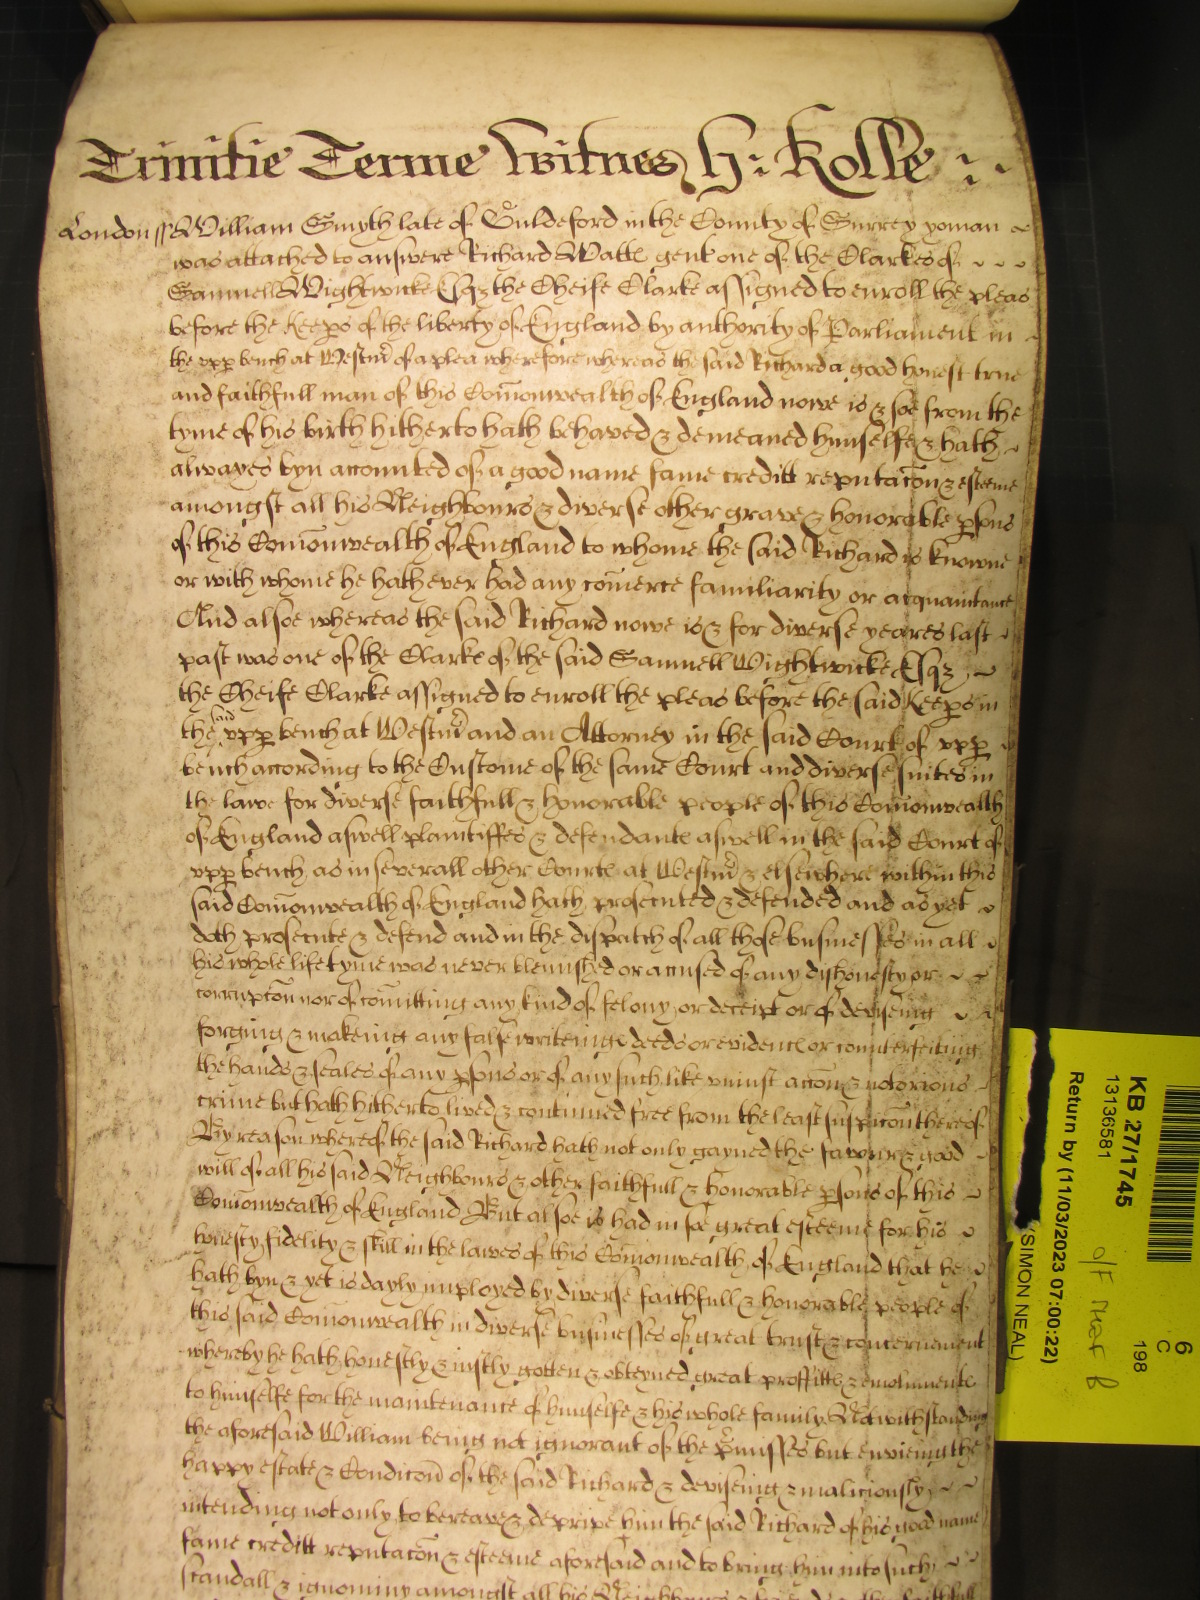 Trinitie Terme Witnes H: Rolle
London ss William Smyth late of Guldeford in the County of Surrey yoman
was attached to answere Richard Watte gent one of the Clarkes of
Samuell Wightwicke Esqz the Cheife Clarke assigned to enroll the pleas
before the Keeps of the liberty of England by authority of Parliament in
the upp bench at Westmr of a plea wherefore whereas the said Richard a good honest true
and faithfull man of this Comonwealth of England nowe is & soe from the
tyme of his birth hitherto hath behaved & demeaned himselfe & hath
alwayes byn accounted of a good name fame creditt reputacon & esteeme
amongst all his Neighbours & diverse other grave & honorable psons
of this Comonwealth of England to whome the said Richard is knowne
or with whome he hath ever had any comerce familiarity or acquaintance
And alsoe whereas the said Richard nowe is & for diverse yeares last
past was one of the Clarke of the said Samuell Wightwicke Esqz
the Cheife Clarke assigned to enroll the pleas before the said Keeps in
the said upp bench at Westmr and an Attorney in the said Court of upp
bench according to the Custome of the same Court and diverse suites in
the lawe for diverse faithfull & honorable people of this Comonwealth
of England aswell plaintiffes & defendante aswell in the said Court of
upp bench as in severall other Courte at Westmr & elsewhere within this
said Comonwealth of England hath prosecuted & defended and as yet
doth prosecute & defend and in the dispatch of all those businesses in all
his whole life tyme was never blemished or accused of any dishonesty or
corrupcon nor of comitting any kind of felony or deceipt or of deviseing
forging & makeing any false writeinge deeds or evidence or counterfeiting
the hands & seales of any psons or of any such like uniust accon & notorious
crime but hath hitherto lived & continued free from the least suspicon thereof
By reason whereof the said Richard hath not only gayned the favour & good
will of all his said Neighbours & other faithfull & honorable psons of this
Comonwealth of England But alsoe is had in soe great esteeme for his
honesty fidelity & skill in the lawes of this Comonwealth of England that he
hath byn & yet is dayly imployed by diverse faithfull & honorable people of
this said Comonwealth in diverse businesses of great trust & concernement
whereby he hath honestly & iustly gotten & obteyned great proffitte & emolumente
to himselfe for the maintenance of himselfe & his whole family Notwithstanding
the aforesaid William being not ignorant of the pmisses but envieing the
happy estate & Condicon of the said Richard & deviseing & maliciously
intending not only to bereave & deprive him the said Richard of his good name
fame creditt reputacon & esteeme aforesaid and to bring him into such
scandall & ignominy amongst all his Neighbours &
KB 27/1745
13136581
Return by (11/03/2023 07:00:22)
(SIMON NEAL)
6
C
198